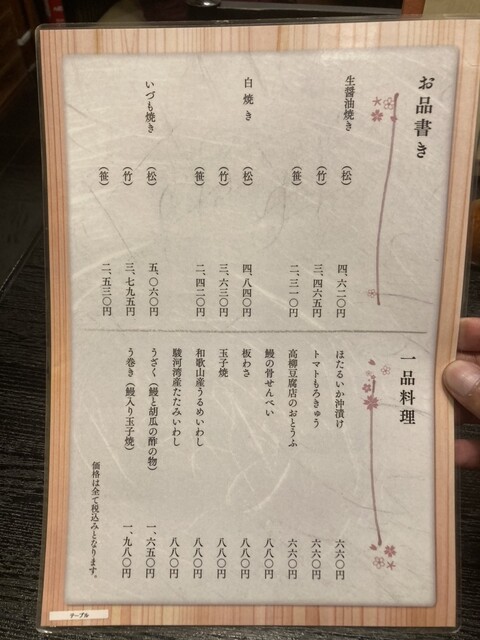 お品書き
生醤油焼き（松）四、六二〇円
（竹）三、四六五円
（笹）二、三一〇円
白焼き（松）四、八四〇円
（竹）三、六三〇円
（笹）二、四二〇円
いづも焼き（松）五、〇六〇円
（竹）三、七九五円
（笹）二、五三〇円
一品料理
ほたるいか沖漬け 六六〇円
トマトもろきゅう 六六〇円
高柳豆腐店のおとうふ 六六〇円
鰻の骨せんべい 八八〇円
板わさ 八八〇円
玉子焼 八八〇円
和歌山産うるめいわし 八八〇円
駿河湾産たたみいわし 八八〇円
うざく（鰻と胡瓜の酢の物） 一、六五〇円
う巻き（鰻入り玉子焼） 一、九八〇円
価格は全て税込みとなります。
テーブル